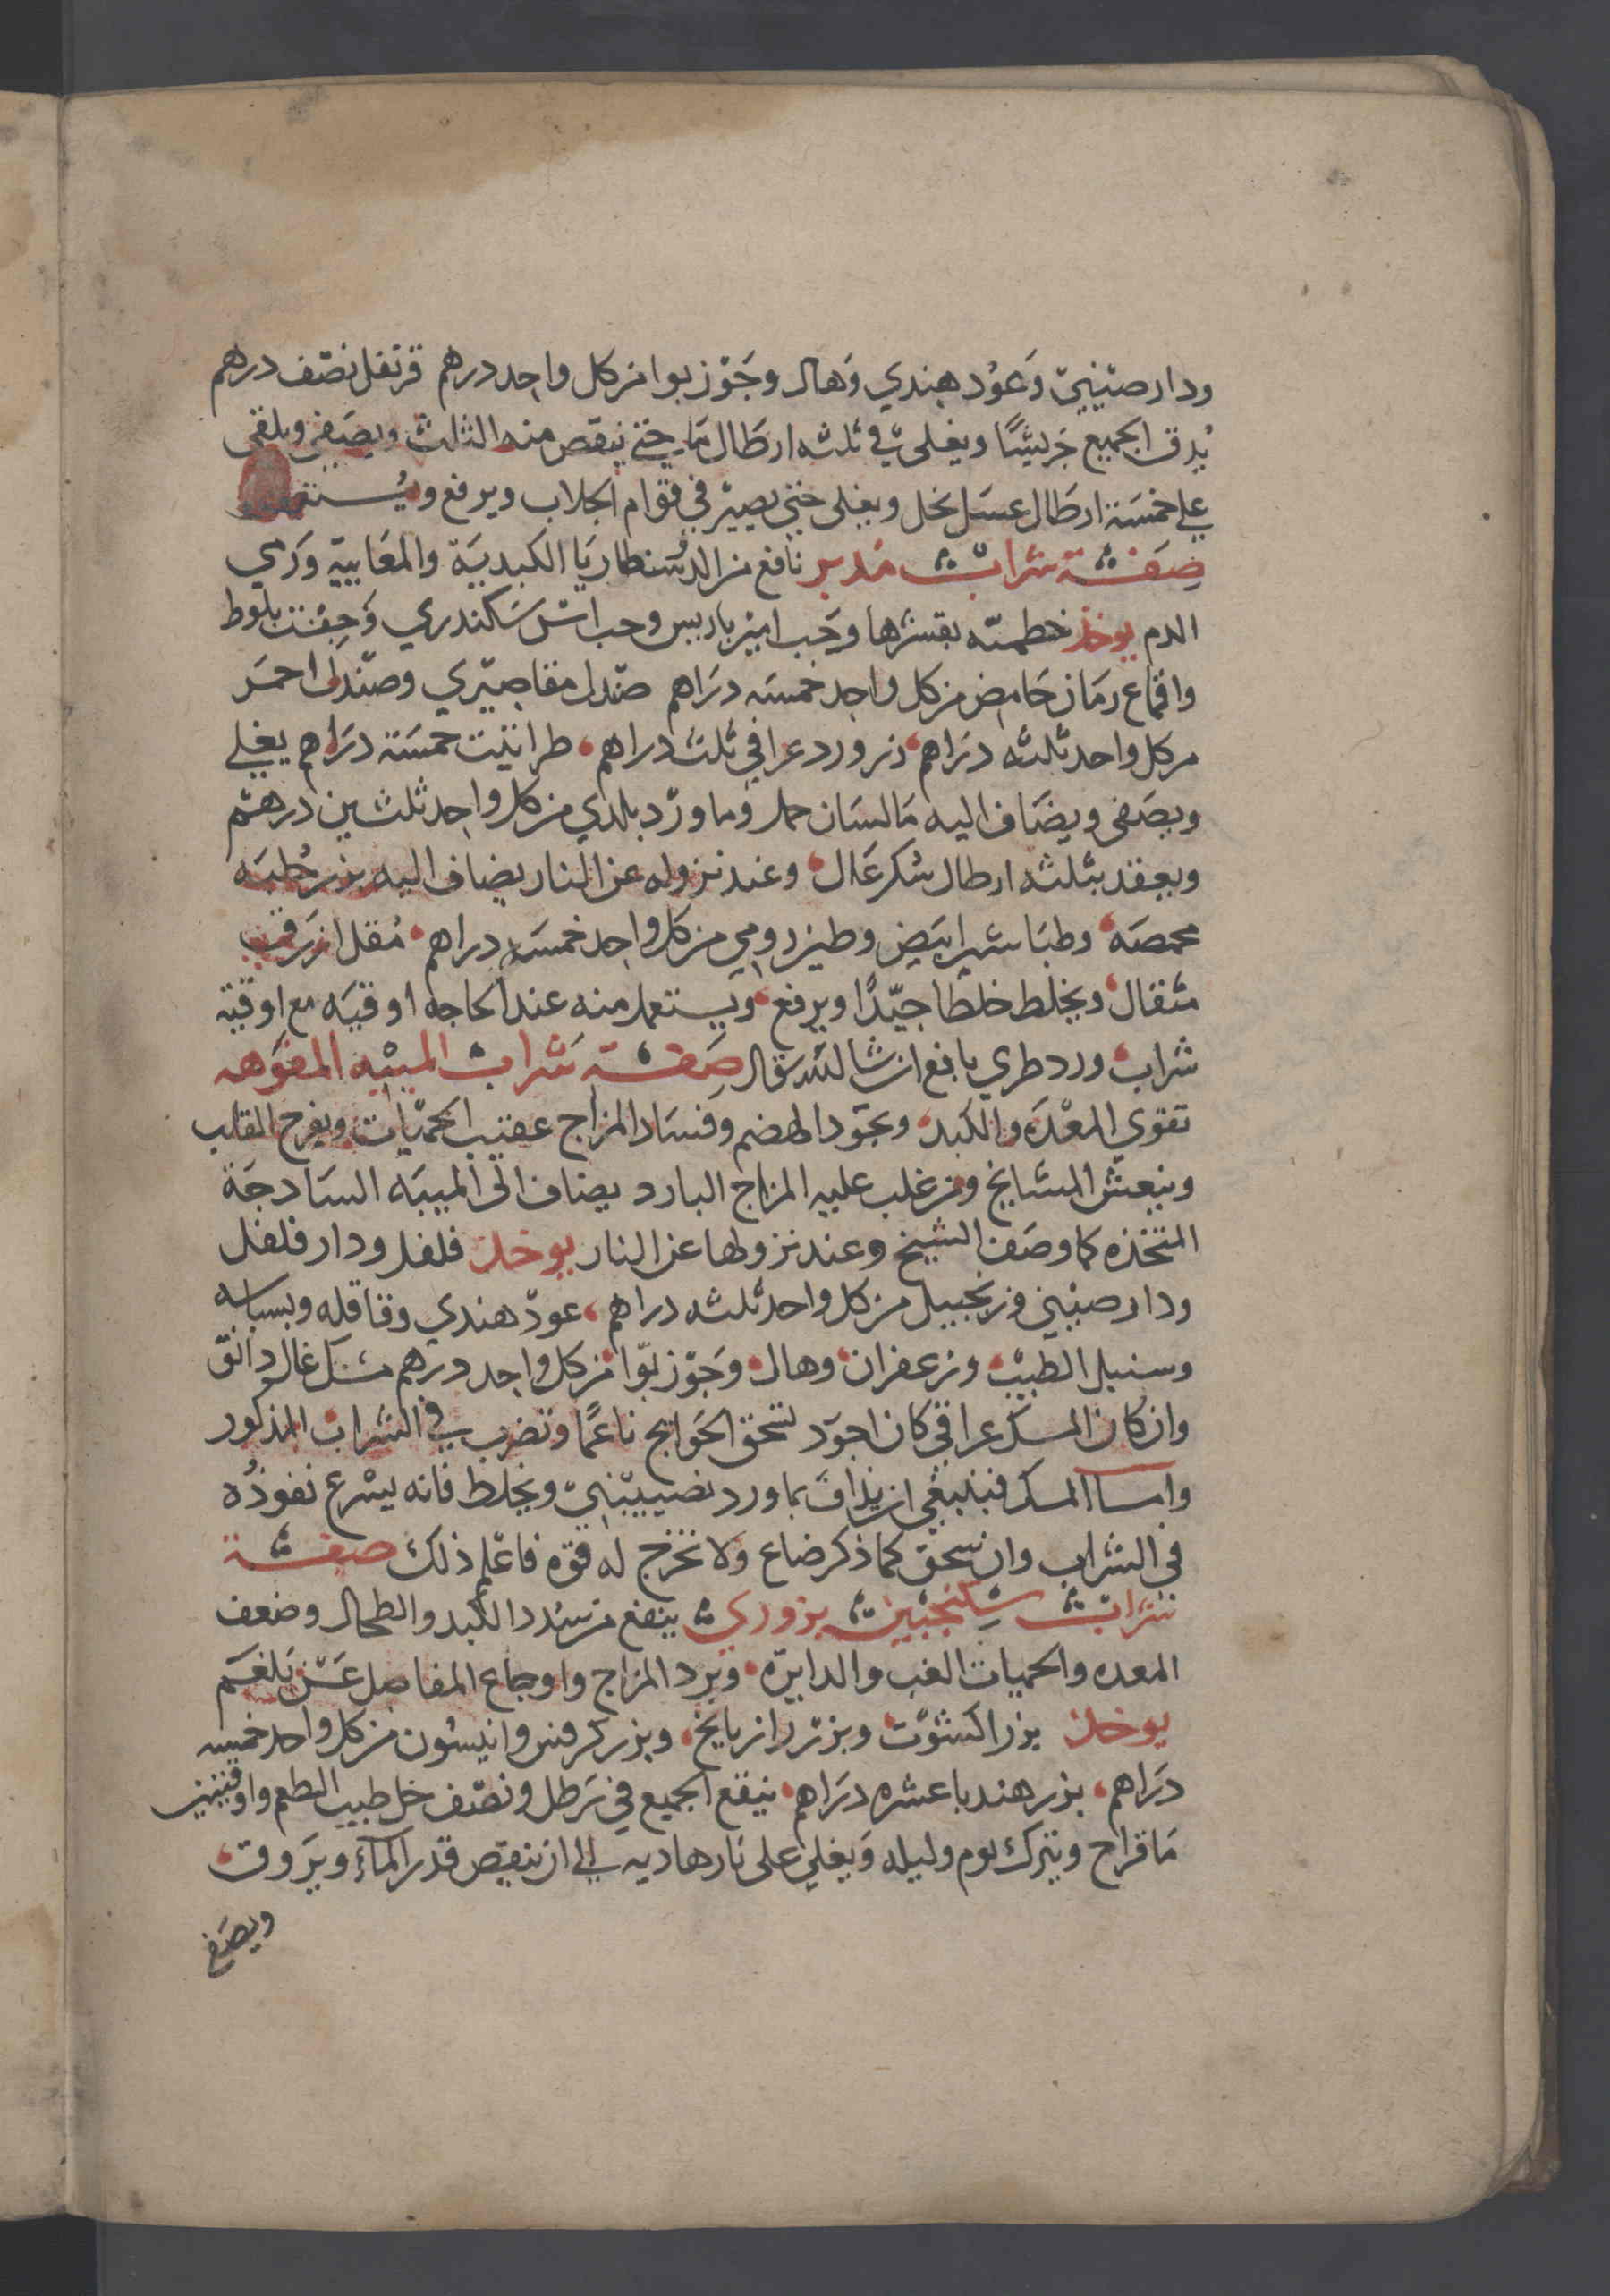 ودار صيني وعود هندي وهال وجوز بوا من كل واحد درهم قرنفل نصف درهم
يدق الجميع جريشا ويغلى في ثلثه ارطال ما حتى ينقص منه الثلث ويصفى ويلقى
على خمسة ارطال عسل نحل ويغلى حتى يصير في قوام الجلاب ويرفع ويستعمل
صفة شراب مدبر نافع من الدسنطاريا الكبدية والمعايية ورمي
الدم يوخذ بقشرها وحب امير باريس وحب اس سكندري وجفت بلوط
واقماع رمان حامض من كل واحد خمسه دراهم صندل مقاصيري وصندل احمر
من كل واحد ثلثه دراهم زر ورد عراقي ثلث دراهم طراثيت خمسة دراهم يغلي
ويصفى ويضاف اليه ما لسان حمل وما ورد بلدي من كل واحد ثلثين درهم
ويعقد بثلثه ارطال سكر عال وعند نزوله عن النار يضاف اليه بزر
محمصه وطباشير ابيض وطين رومي من كل واحد خمسه دراهم مقل ازرق
مثقال ويخلط خلطا جيدا ويرفع ويستعمل منه عند الحاجه اوقيه مع اوقية
شراب ورد طري يانع ان شا الله تعالى صفة شراب الميبه المفوهه
تقوي المعده والكبد وتجود الهضم وفساد المزاج عقيب الحميات ويفرح القلب
وينعش المشايخ ومن غلب عليه المزاج البارد يضاف الى الميبه السادجة
المتخذه كما وصف الشيخ وعند نزولها عن النار يوخذ فلفل ودار فلفل
ودار صيني وزنجبيل من كل واحد ثلثه دراهم عود هندي وقاقله وبسباسه
وسنبل الطيب وزعفران وهال وجوز بوا من كل واحد درهم مسك غال دانق
وان كان المسك عراقي كان اجود تسحق الحوايج ناعما وتضرب في الشراب المذكور
واما المسك فينبغي ان يذاف بما ورد نصيبيني ويخلط فانه يسرع نفوذه
في الشراب وان سحق كما ذكر ضاع ولا تخرج له قوه فاعلم ذلك صفة
شراب سكنجبين بزوري ينفع من سدد الكبد والطحال وضعف
المعده والحميات الغب والدايره وبرد المزاج واوجاع المفاصل عن بلغم
يوخذ بزر اكشوت وبزر رازيانج وبزر كرفس وانيسون من كل واحد خمسه
دراهم بزر هندبا عشره دراهم ينقع الجميع في رطل ونصف خل طيب الطعم واوقيتين
ما قراح ويترك يوم وليله ويغلي على نار هاديه الى ان ينقص قدر الماء ويروق
ويصفى